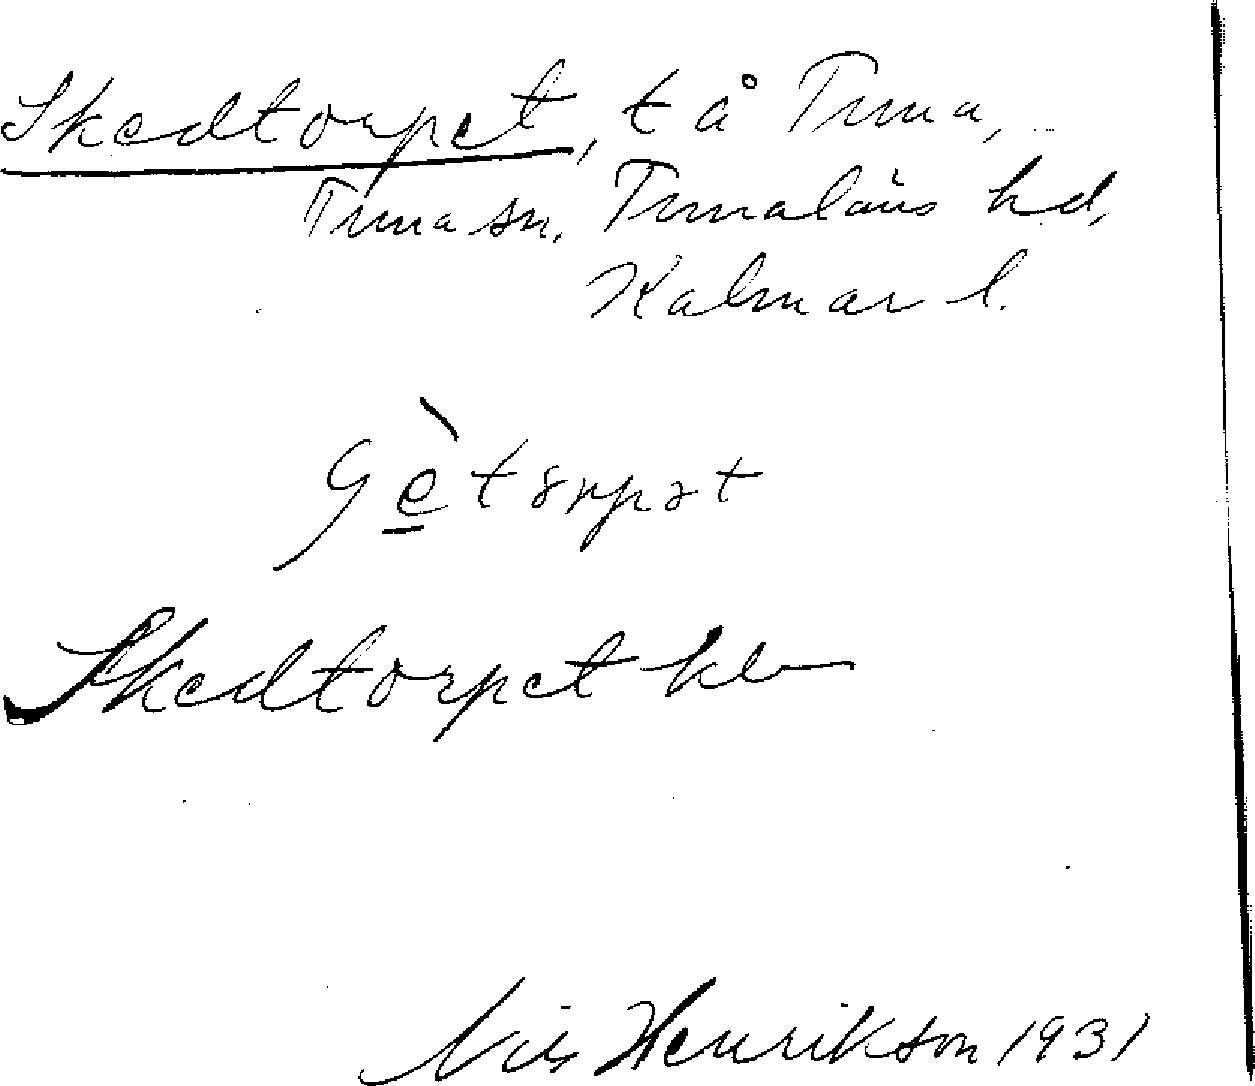 Skedtorpet, t å Tuna,
Tuna sn. Tunaläns hd,
Kalmar l.
Skedtorpet kb
Nils Henrikson 1931